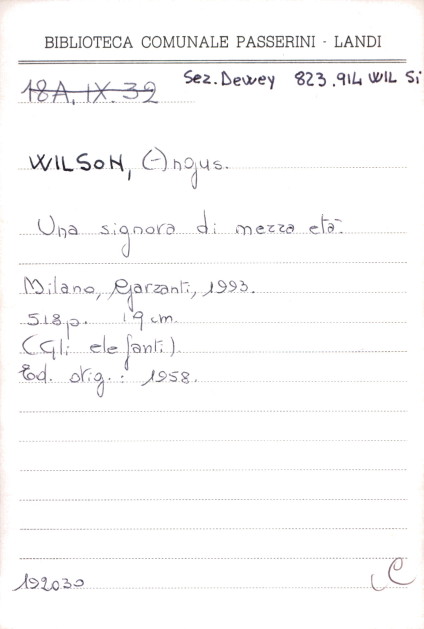 BIBLIOTECA COMUNALE PASSERINI - LANDI
18A.IX.32 Sez. Dewey 823.914 WIL Si
WILSON, Angus.
Una signora di mezza età.
Milano, Garzanti, 1993.
518 p. 19 cm.
(Gli elefanti).
Ed. orig.: 1958.
192030